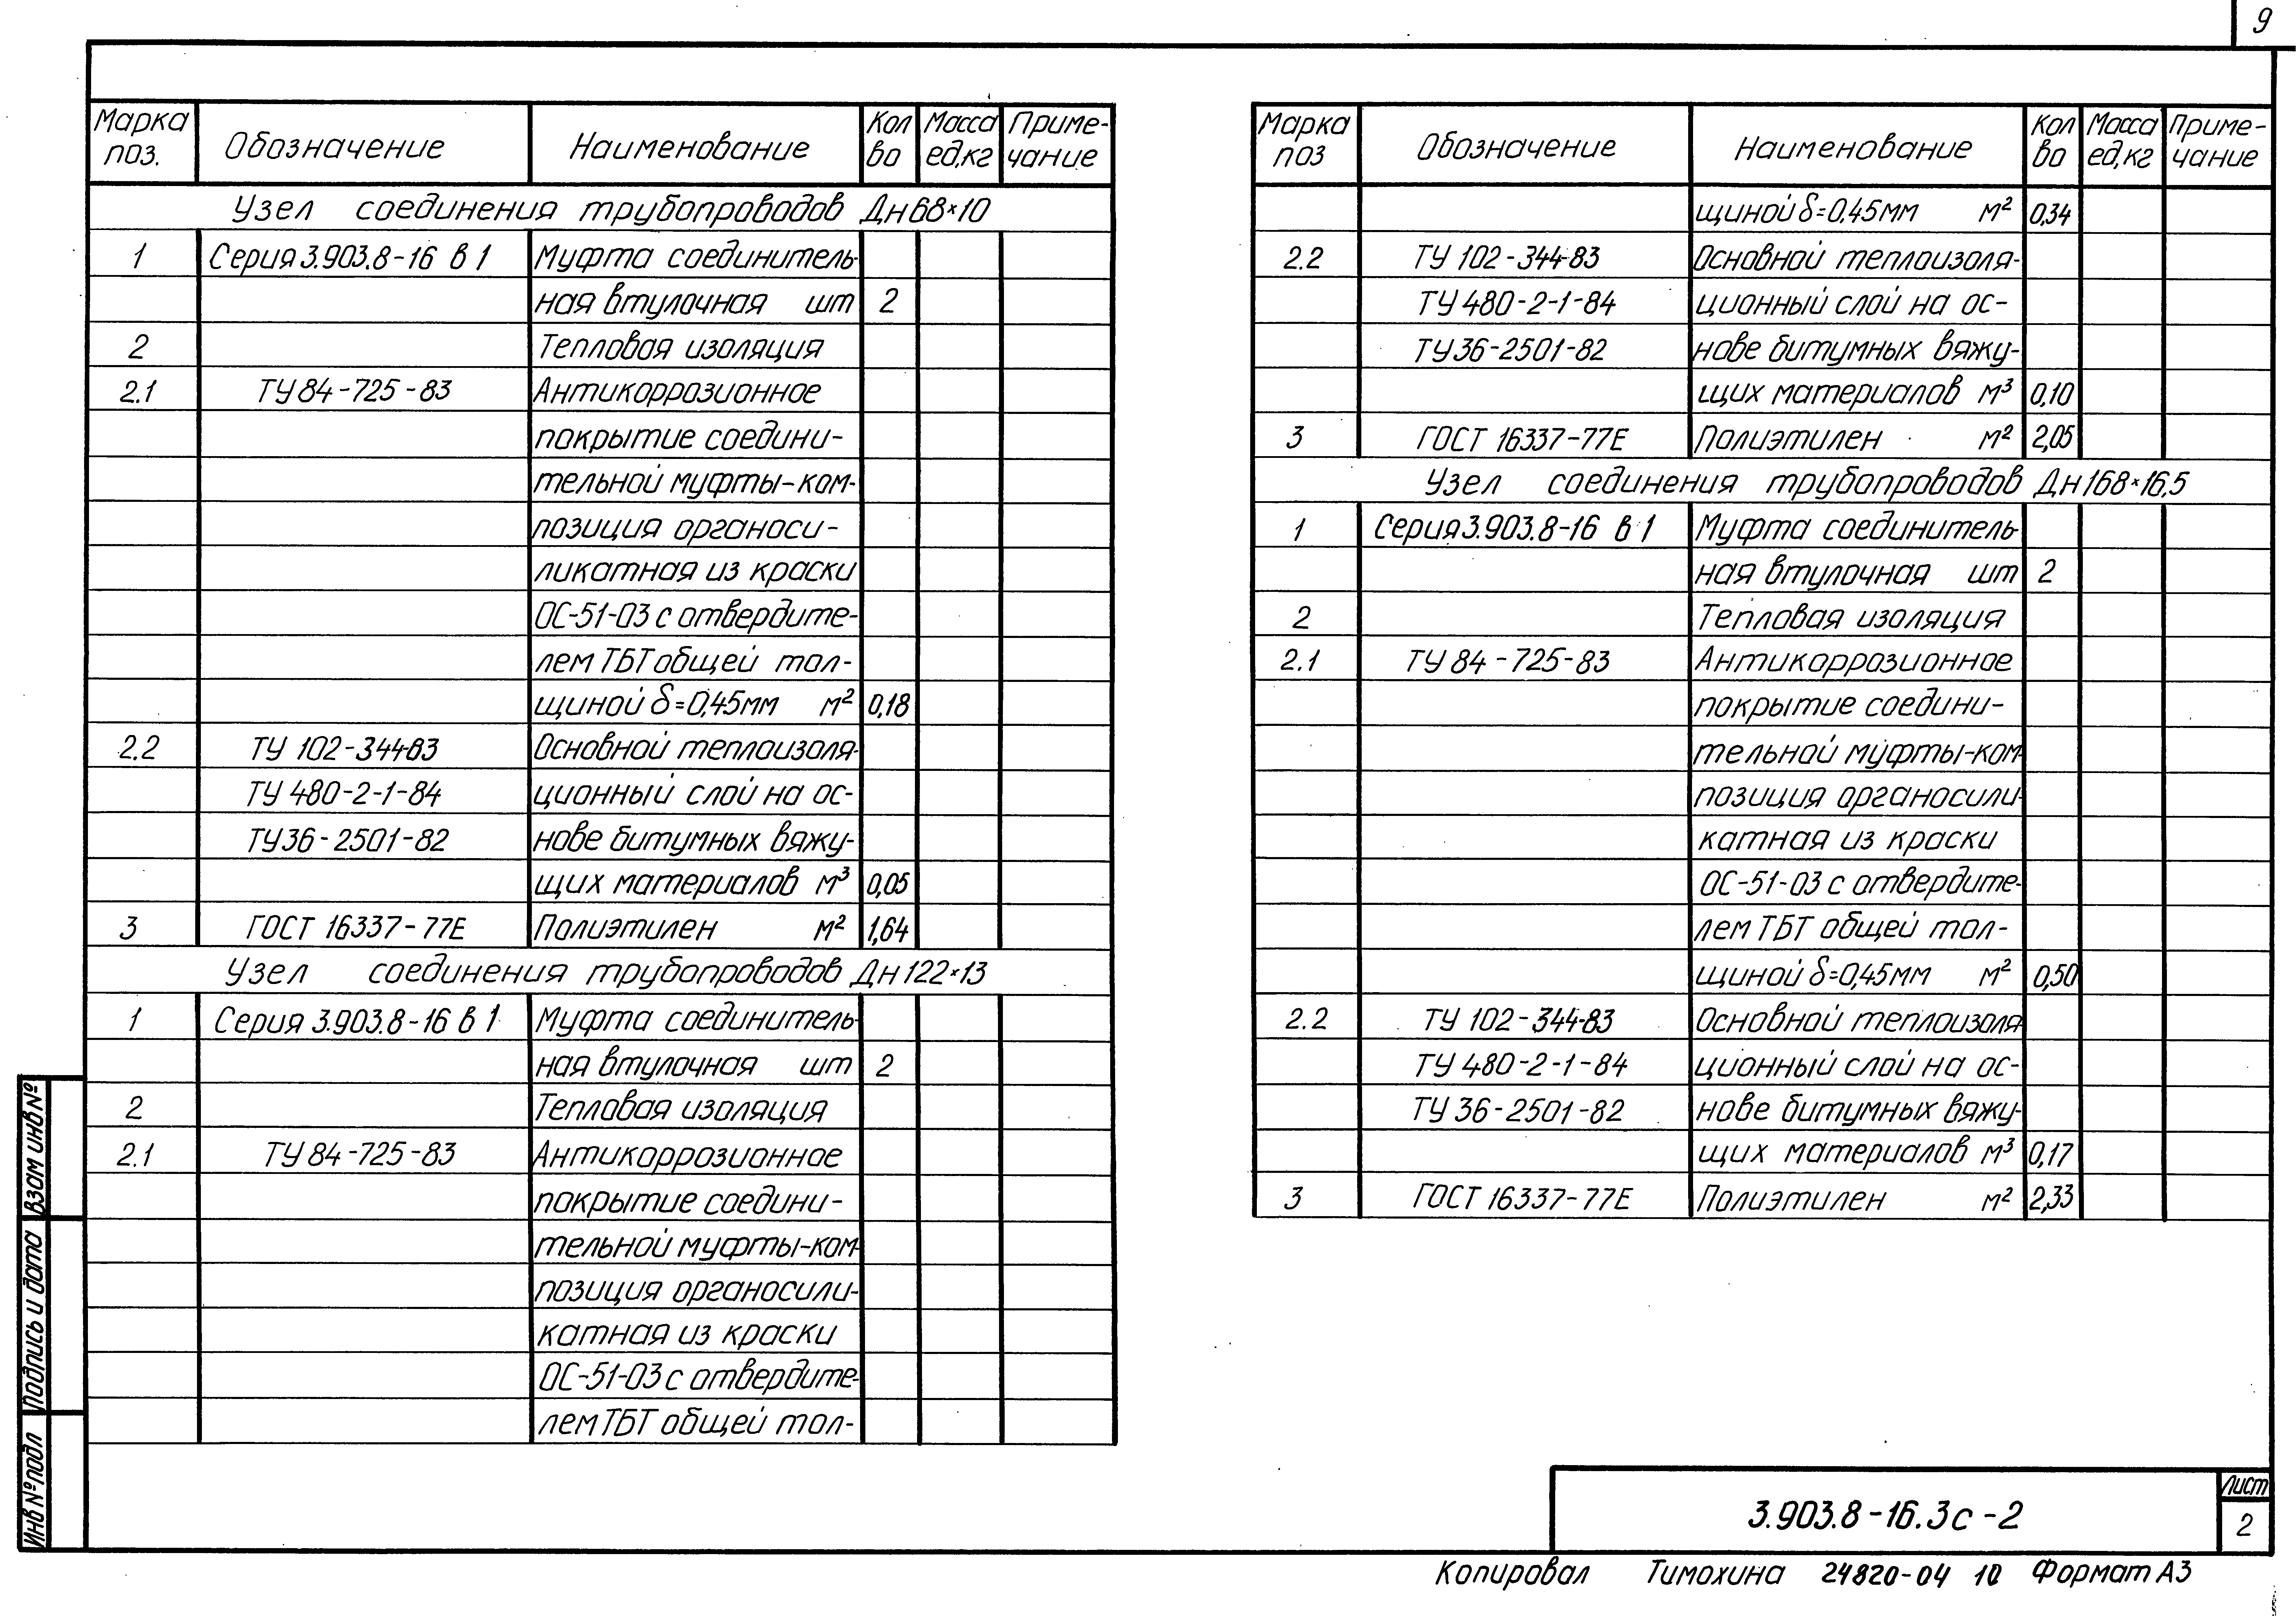 9
Марка поз. Обозначение Наименование Кол во Масса ед,кг Приме-чание
Узел соединения трубопроводов Дн 68×10
1 Серия 3.903.8-16 в 1 Муфта соединитель-
ная втулочная шт 2
2 Тепловая изоляция
2.1 ТУ 84-725-83 Антикоррозионное
покрытие соедини-
тельной муфты-ком-
позиция органоси-
ликатная из краски
ОС-51-03 с отвердите-
лем ТБТ общей тол-
щиной δ=0,45мм м² 0,18
2.2 ТУ 102-344-83 Основной теплоизоля-
ТУ 480-2-1-84 ционный слой на ос-
ТУ36-2501-82 нове битумных вяжу-
щих материалов м³ 0,05
3 ГОСТ 16337-77Е Полиэтилен м² 1,64
Узел соединения трубопроводов Дн 122×13
1 Серия 3.903.8-16 в 1 Муфта соединитель-
ная втулочная шт 2
2 Тепловая изоляция
2.1 ТУ 84-725-83 Антикоррозионное
покрытие соедини-
тельной муфты-ком-
позиция органосили-
катная из краски
ОС-51-03 с отвердите-
лем ТБТ общей тол-
Марка поз Обозначение Наименование Кол во Масса ед,кг Приме-чание
щиной δ=0,45мм м² 0,34
2.2 ТУ 102-344-83 Основной теплоизоля-
ТУ 480-2-1-84 ционный слой на ос-
ТУ36-2501-82 нове битумных вяжу-
щих материалов м³ 0,10
3 ГОСТ 16337-77Е Полиэтилен м² 2,05
Узел соединения трубопроводов Дн 168×16,5
1 Серия 3.903.8-16 в 1 Муфта соединитель-
ная втулочная шт 2
2 Тепловая изоляция
2.1 ТУ 84-725-83 Антикоррозионное
покрытие соедини-
тельной муфты-ком-
позиция органосили-
катная из краски
ОС-51-03 с отвердите-
лем ТБТ общей тол-
щиной δ=0,45мм м² 0,50
2.2 ТУ 102-344-83 Основной теплоизоля-
ТУ 480-2-1-84 ционный слой на ос-
ТУ 36-2501-82 нове битумных вяжу-
щих материалов м³ 0,17
3 ГОСТ 16337-77Е Полиэтилен м² 2,33
Взам инв №
Подпись и дата
Инв № подл
3.903.8-16.3с-2
Лист
2
Копировал Тимохина 24820-04 10 Формат А3